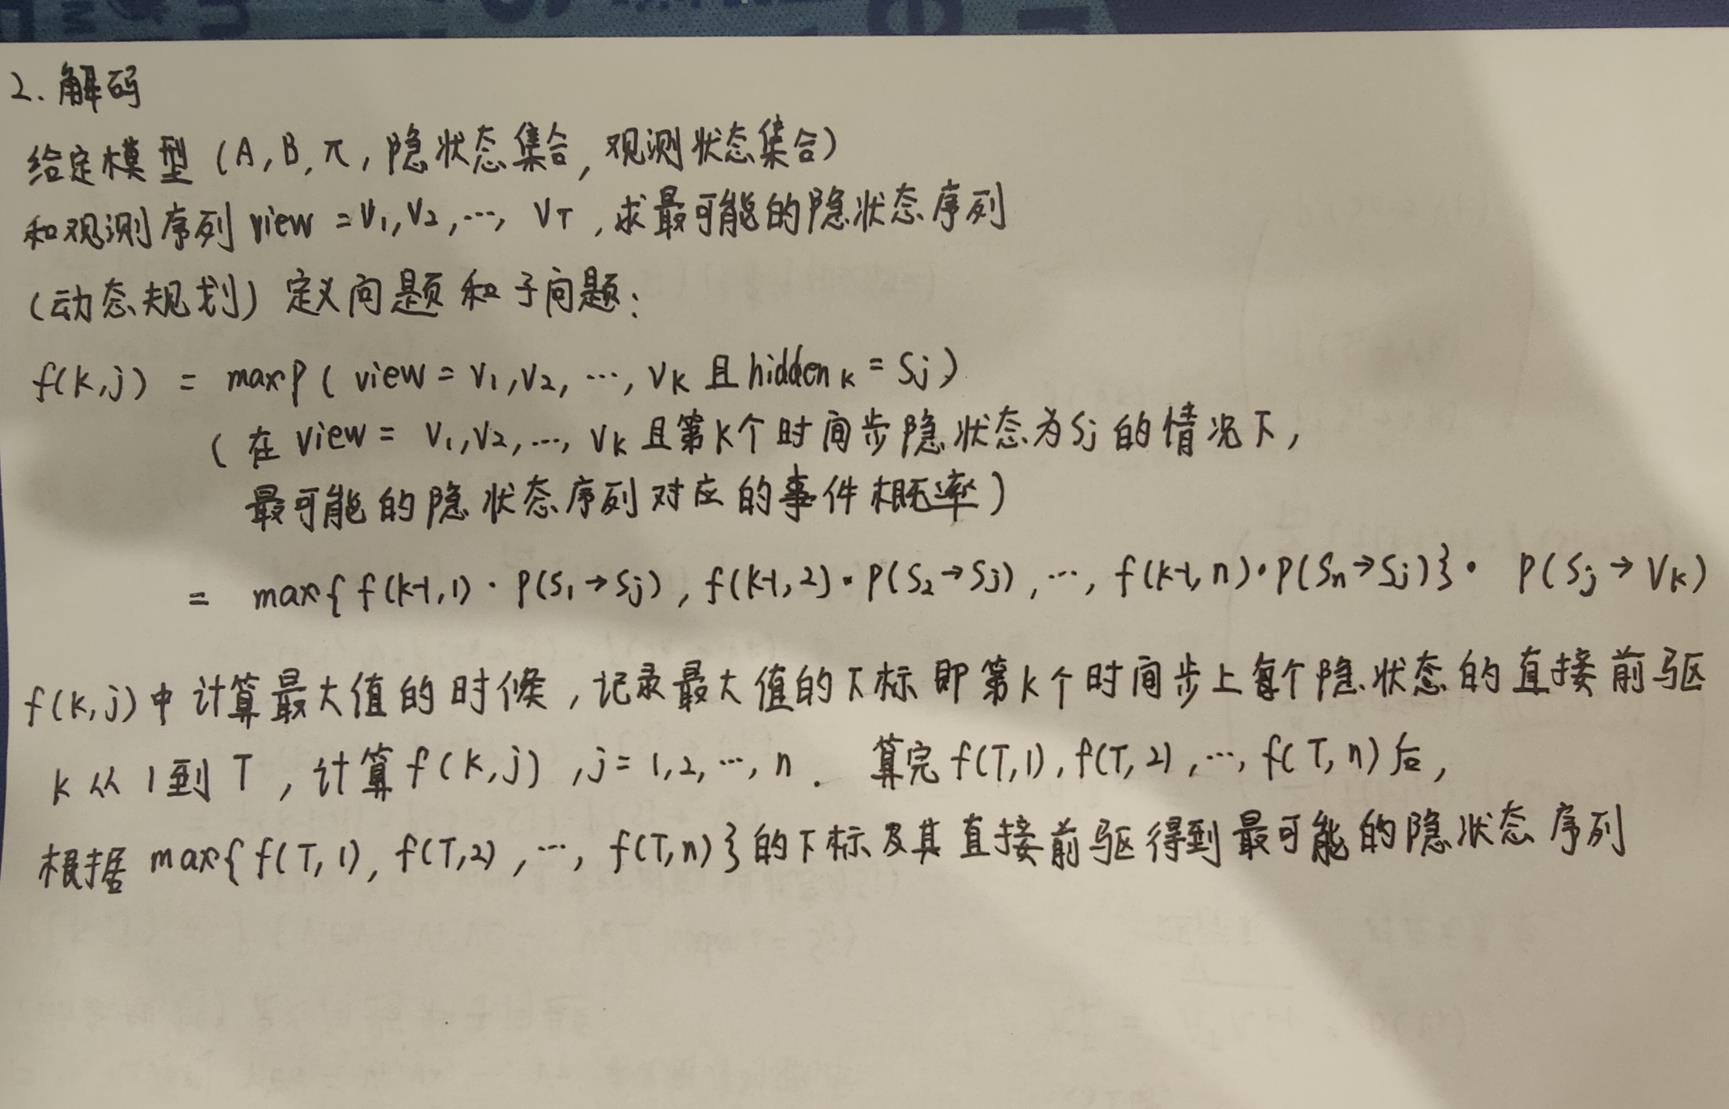 2. 解码
给定模型 (A, B, π, 隐状态集合, 观测状态集合)
和观测序列 view = V₁, V₂, ···, V_T , 求最可能的隐状态序列
(动态规划) 定义问题和子问题:
f(k,j) = max P ( view = V₁,V₂, ···, V_K 且 hidden_K = Sj )
( 在 view = V₁,V₂, ···, V_K 且第K个时间步隐状态为Sj 的情况下,
最可能的隐状态序列对应的事件概率 )
= max{ f(k-1,1) · P(S₁→Sj) , f(k-1,2) · P(S₂→Sj) , ···, f(k-1,n) · P(Sn→Sj) } · P(Sj → V_K)
f(k,j) 中计算最大值的时候 , 记录最大值的下标 即第K个时间步上每个隐状态的直接前驱
K 从 1 到 T , 计算 f(k,j) , j = 1,2, ···, n . 算完 f(T,1), f(T,2) , ···, f(T,n) 后,
根据 max{ f(T,1), f(T,2) , ···, f(T,n) } 的下标及其直接前驱得到最可能的隐状态序列